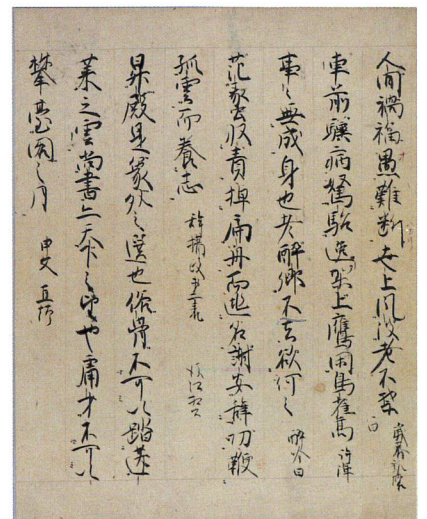 人間禍福愚難断世上風波老不禁 白
車前驥病駑駘逸架上鷹閑鳥雀高 許渾
事々無成身也老酔郷不去欲何之 酔吟白
范蠡収責掉扁舟而逃名謝安辞功鞭
孤雲而養志 辞摂政第三表 後江相公
昇殿是象外之選也俗骨不可以踏蓬
莱之雲尚書亦天下之望也庸才不可以
攀臺閣之月 申文 直幹